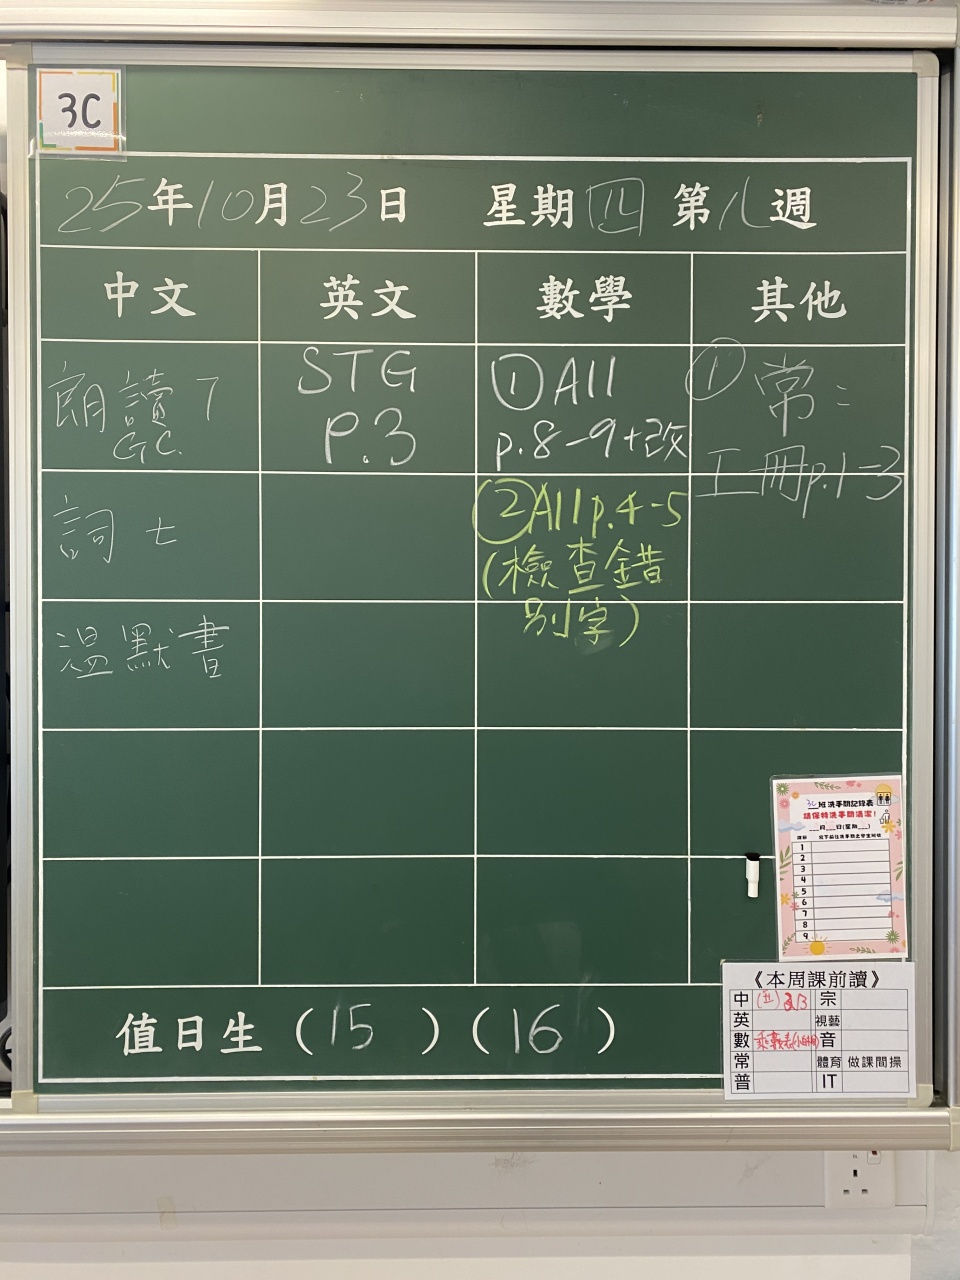 3C
25年10月23日 星期四 第八週
中文 英文 數學 其他
朗讀7
GC.
STG
P.3
①A11
p.8-9+改
①常:
工冊p.1-3
詞七
②A11p.4-5
(檢查錯
別字)
溫默書
值日生(15)(16)
3C班洗手間記錄表
請保持洗手間清潔!
___月___日(星期___)
1
2
3
4
5
6
7
8
9
《本周課前讀》
中 宗
英 視藝
數 乘數表 音
常 體育 做課間操
普 IT